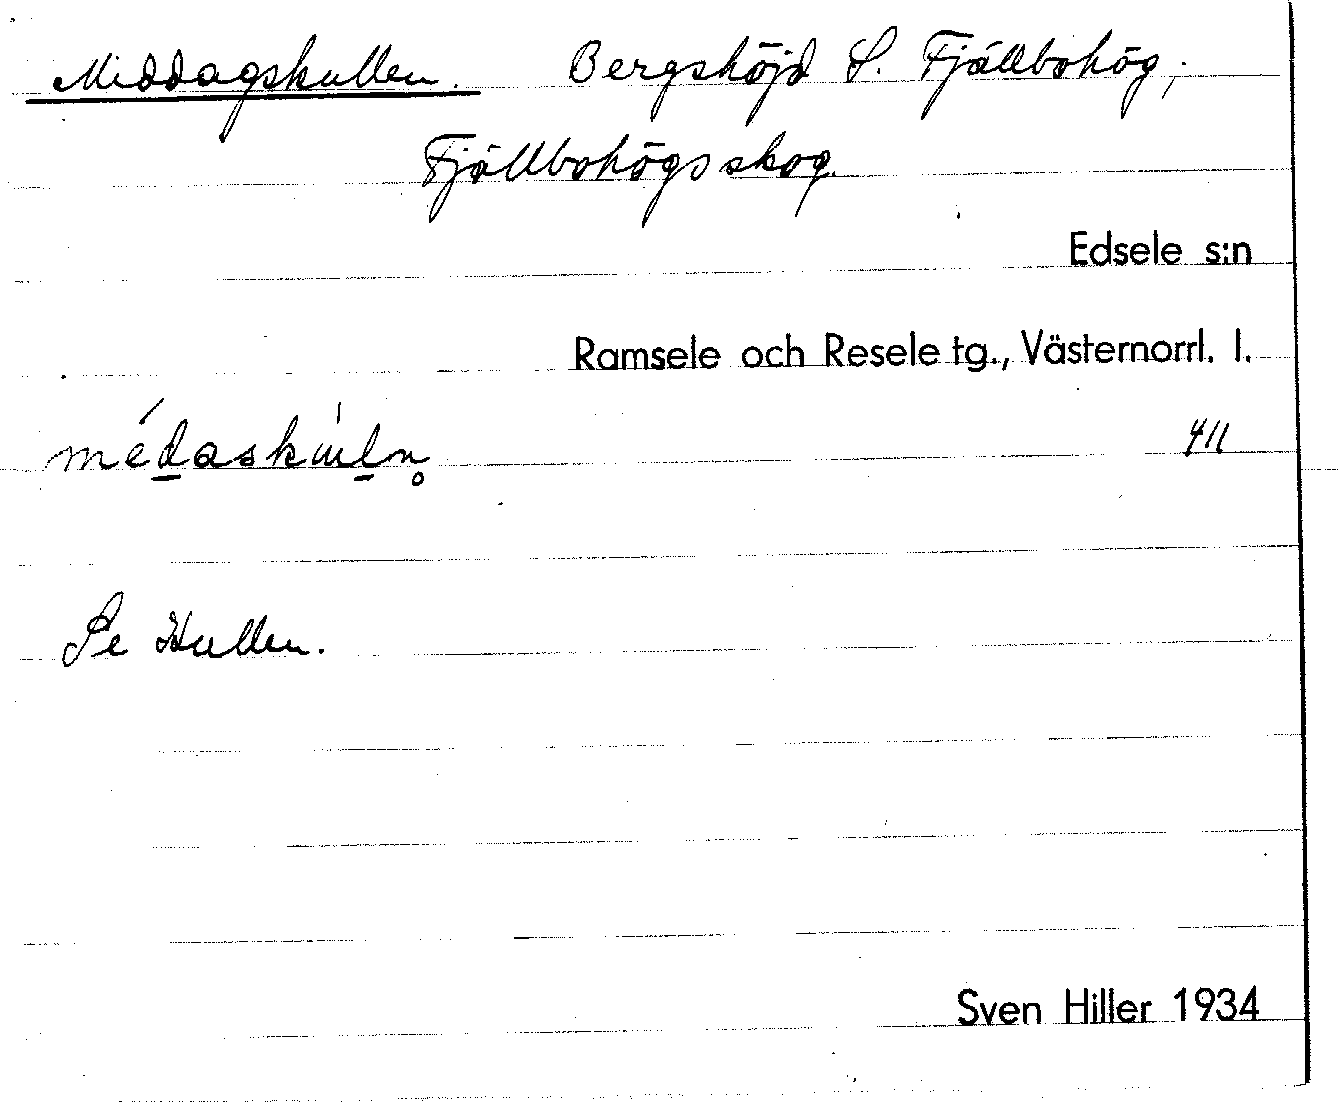 Middagskullen. Bergshöjd S. Fjällbohög,
Fjällbohögsskog.
Edsele s:n
Ramsele och Resele tg., Västernorrl. l.
médaskùln̥ 411
Se Kullen.
Sven Hiller 1934